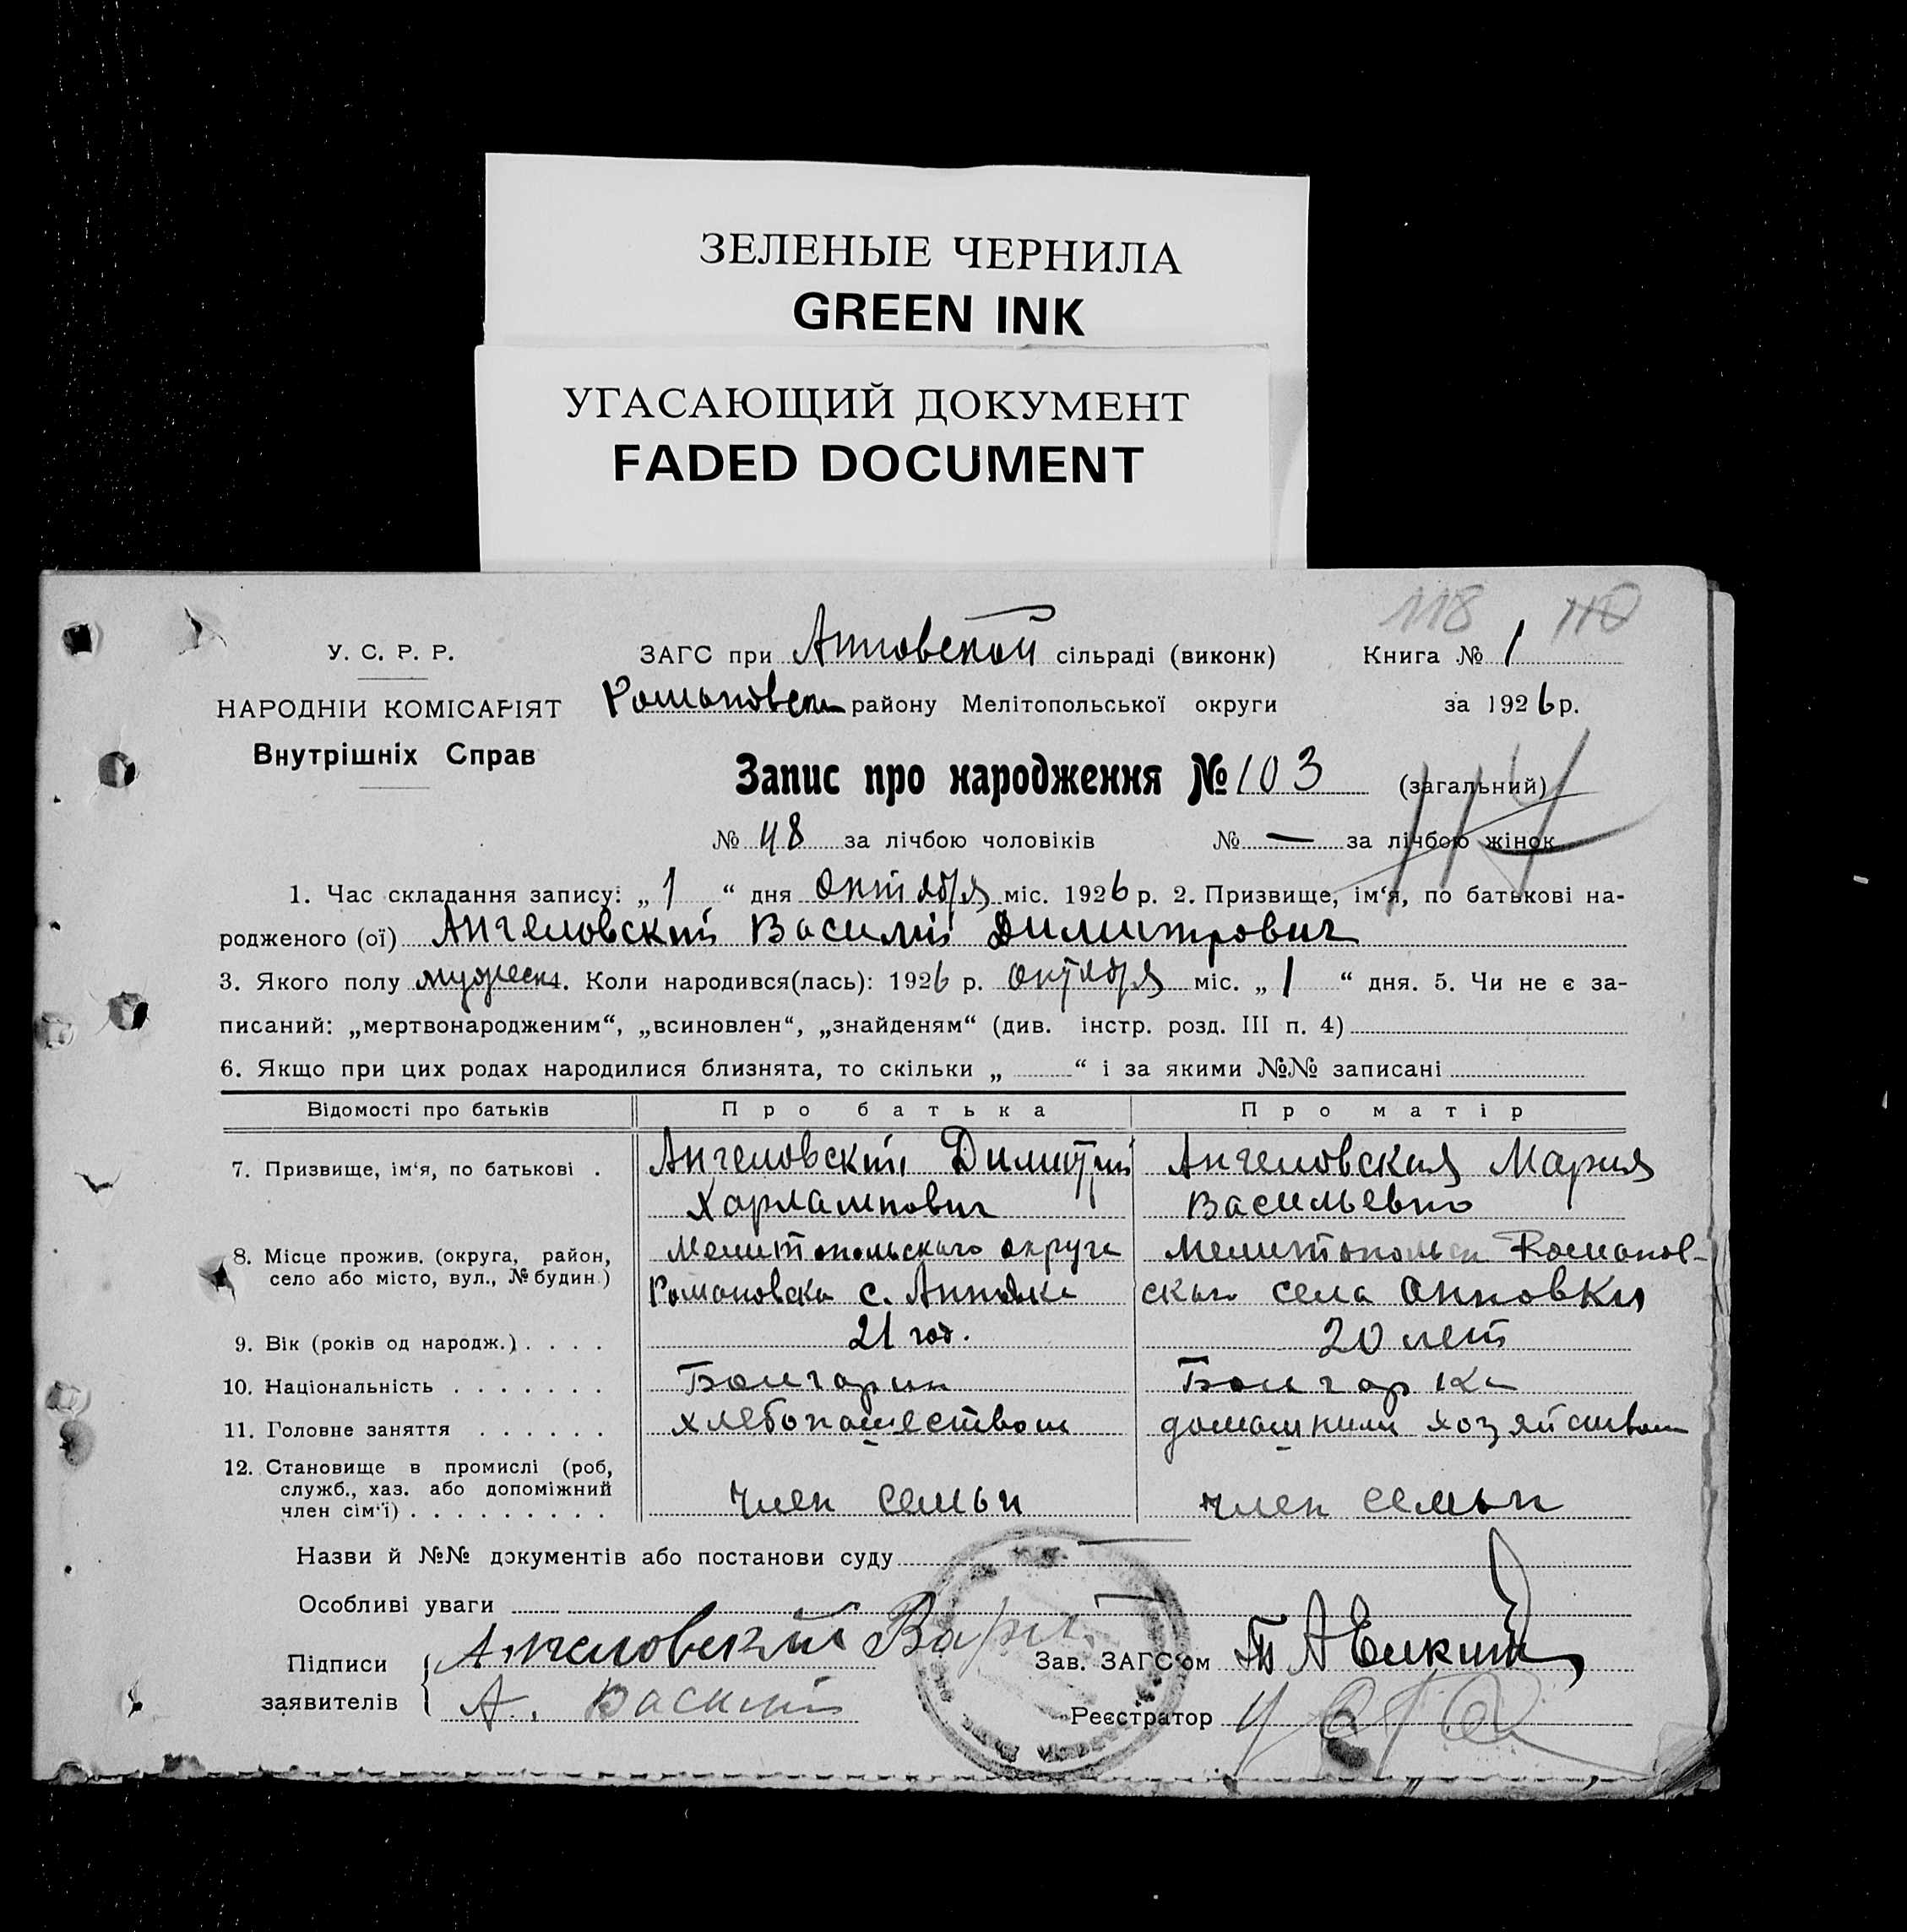 ЗЕЛЕНЫЕ ЧЕРНИЛА
GREEN INK
УГАСАЮЩИЙ ДОКУМЕНТ
FADED DOCUMENT
118 110
У. С. Р. Р.
НАРОДНІЙ КОМІСАРІЯТ
Внутрішніх Справ
ЗАГС при Анновской сільраді (виконк) Книга № 1
Романовск району Мелітопольської округи за 1926 р.
Запис про народження № 103 (загальний)
114
№ 48 за лічбою чоловіків № — за лічбою жінок
1. Час складання запису: „ 1 “ дня октября міс. 1926 р. 2. Призвище, ім‘я, по батькові на-
родженого (ої) Ангеловский Василий Димитрович
3. Якого полу мужеск 4. Коли народився(лась): 1926 р. октября міс. „ 1 “ дня. 5. Чи не є за-
писаний: „мертвонародженим“, „всиновлен“, „знайденям“ (див. інстр. розд. III п. 4)
6. Якщо при цих родах народилися близнята, то скільки „ “ і за якими №№ записані
Відомості про батьків Про батька Про матір
7. Призвище, ім‘я, по батькові . Ангеловский Димитрий Ангеловская Мария
Харлампович Васильевно
8. Місце прожив. (округа, район, Мелитопольского округа Мелитопольск Романов-
село або місто, вул., № будин.) Романовска с. Анновка скаго села Анновки
9. Вік (років од народж.) . . . . 21 год. 20 лет
10. Національність . . . . . . . Болгарин Болгарка
11. Головне заняття . . . . . . хлебопашеством домашним хозяйством
12. Становище в промислі (роб,
служб., хаз. або допоміжний
член сім‘ї) . . . . . . . . . член семьи член семьи
Назви й №№ документів або постанови суду
Особливі уваги
Підписи Ангеловский Зав. ЗАГС‘ом
заявителів А. Василий Реєстратор